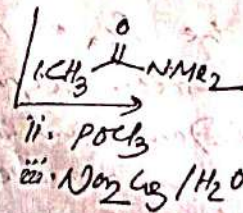 O
i. CH3 N·Me2
ii. POCl3
iii. Na2CO3 / H2O